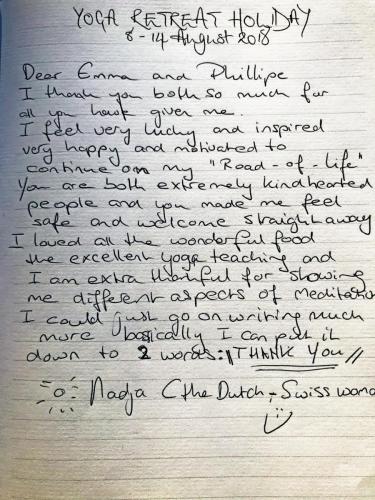 YOGA RETREAT HOLIDAY
8 - 14 August 2018
Dear Emma and Phillipe
I thank you both so much for
all you have given me.
I feel very lucky and inspired
very happy and motivated to
continue on my "Road - of - life"
You are both extremely kindhearted
people and you made me feel
safe and welcome straight away
I loved all the wonderful food
the excellent yoga teaching and
I am extra thankful for showing
me different aspects of meditation
I could just go on writing much
more basically I can put it
down to 2 words: "THANK YOU"
Nadja (the Dutch - Swiss woma